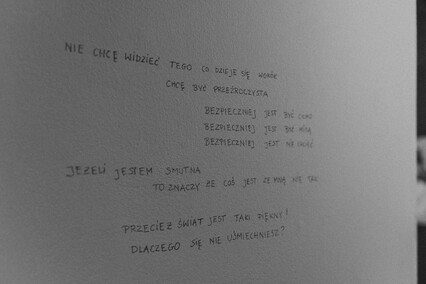 NIE CHCĘ WIDZIEĆ TEGO CO DZIEJE SIĘ WOKÓŁ
CHCĘ BYĆ PRZEŹROCZYSTA
BEZPIECZNIEJ JEST BYĆ
BEZPIECZNIEJ JEST BYĆ
BEZPIECZNIEJ JEST NIE
JEŻELI JESTEM SMUTNA
TO ZNACZY ŻE COŚ JEST ZE MNĄ NIE TAK
PRZECIEŻ ŚWIAT JEST TAKI PIĘKNY!
DLACZEGO SIĘ NIE UŚMIECHNIESZ?